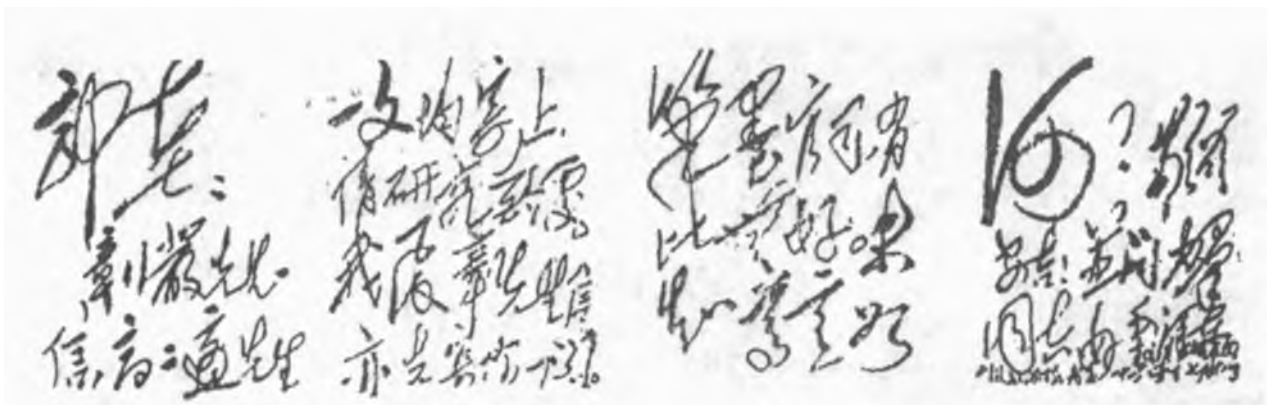 郭老:
章行严先生一
信,高二适先生
一文均寄上,
请研究酌处。
我复章先生信
亦先寄你一阅。
笔墨官司,有
比无好。未
知尊意如
何?敬颂
安吉!并问力群
同志好 毛泽东